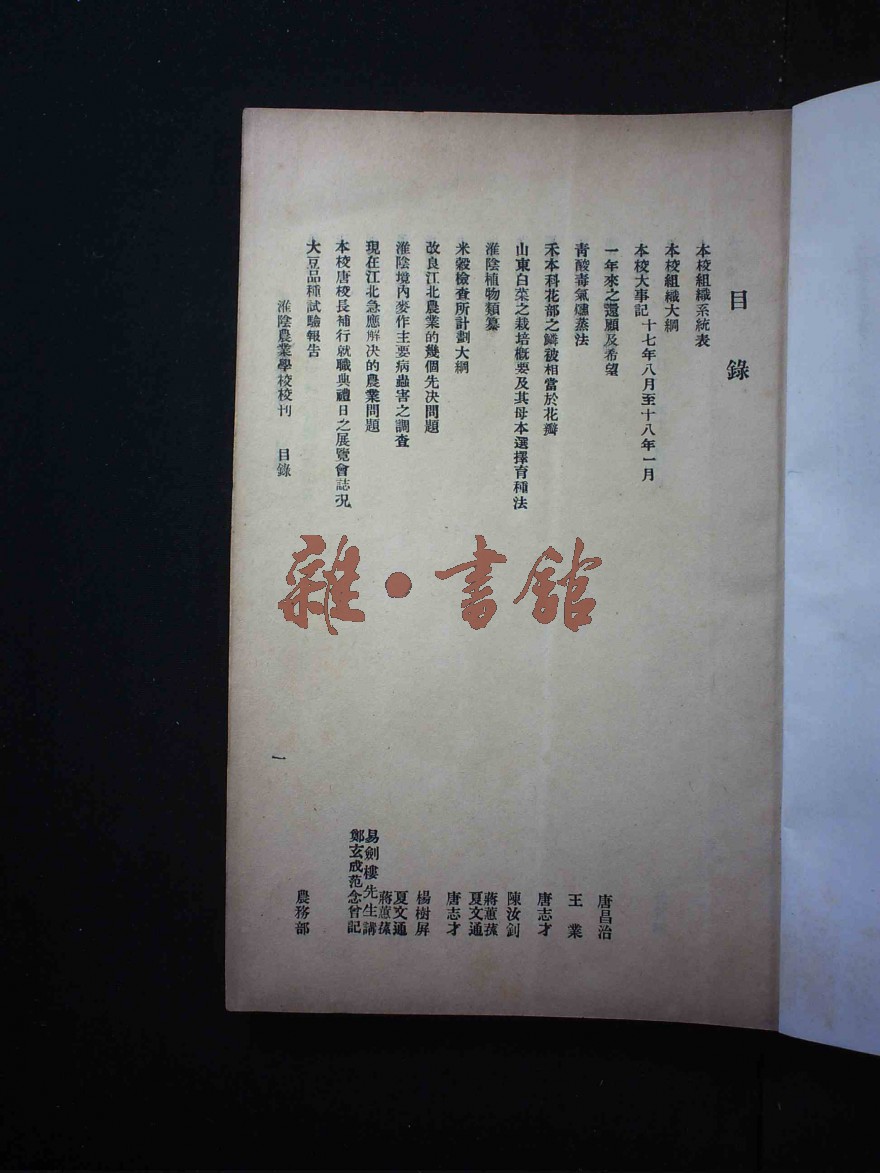 目錄
本校組織系統表
本校組織大綱
本校大事記 十七年八月至十八年一月
一年來之還顧及希望 唐昌治
青酸毒氣燻蒸法 王業
禾本科花部之鱗被相當於花瓣 唐志才
山東白菜之栽培概要及其母本選擇育種法 陳汝釗
淮陰植物類纂 蔣蕙蓀 夏文通
米穀檢查所計劃大綱 唐志才
改良江北農業的幾個先決問題 楊樹屏
淮陰境內麥作主要病蟲害之調查 夏文通 蔣蕙蓀
現在江北急應解決的農業問題 易劍樓先生講 鄭玄成范念曾記
本校唐校長補行就職典禮日之展覽會誌況
大豆品種試驗報告 農務部
淮陰農業學校校刊 目錄
一
雜·書館